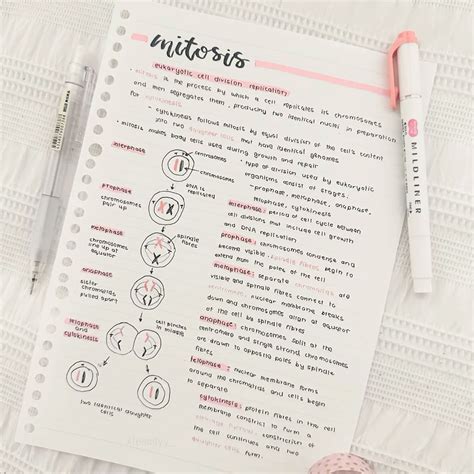 mitosis
eukaryotic cell division replication
• mitosis is the process by which a cell replicates its chromosomes
and then segregates them, producing two identical nuclei in preparation
for cytokinesis
- cytokinesis follows mitosis by equal division of the cell's content
into two daughter cells that have identical genomes
• mitosis makes body cells used during growth and repair
• type of division used by eukaryotic
organisms consist of stages:
- prophase, metaphase, anaphase,
telophase, cytokinesis
interphase
chromosomes
chromosomes
DNA is
replicated
prophase
chromosomes
pair up
metaphase
chromosomes
line up at
equator
spindle
fibres
anaphase
sister
chromatids
pulled apart
telophase
and
cytokinesis
cell pinches
in middle
two identical daughter
cells
interphase: period of cell cycle between
cell divisions that include cell growth
and DNA replication
prophase: chromosomes condense and
become visible. Spindle fibres begin to
extend from the centrioles
metaphase: separate chromatids are
visible and spindle fibres connect to
centrioles, nuclear membrane breaks
down and chromosomes align at equator
of the cell by spindle fibres
anaphase: chromosomes split at the
centromere and single strand chromosomes
are drawn to opposing poles by spindle
fibres
telophase: nuclear membrane forms
around the chromatids and cells begin
to separate
cytokinesis: protein fibres in the cell
membrane constrict to form a
cleavage furrow, constriction of
the cell continues and two
daughter cells form
MILDLINER